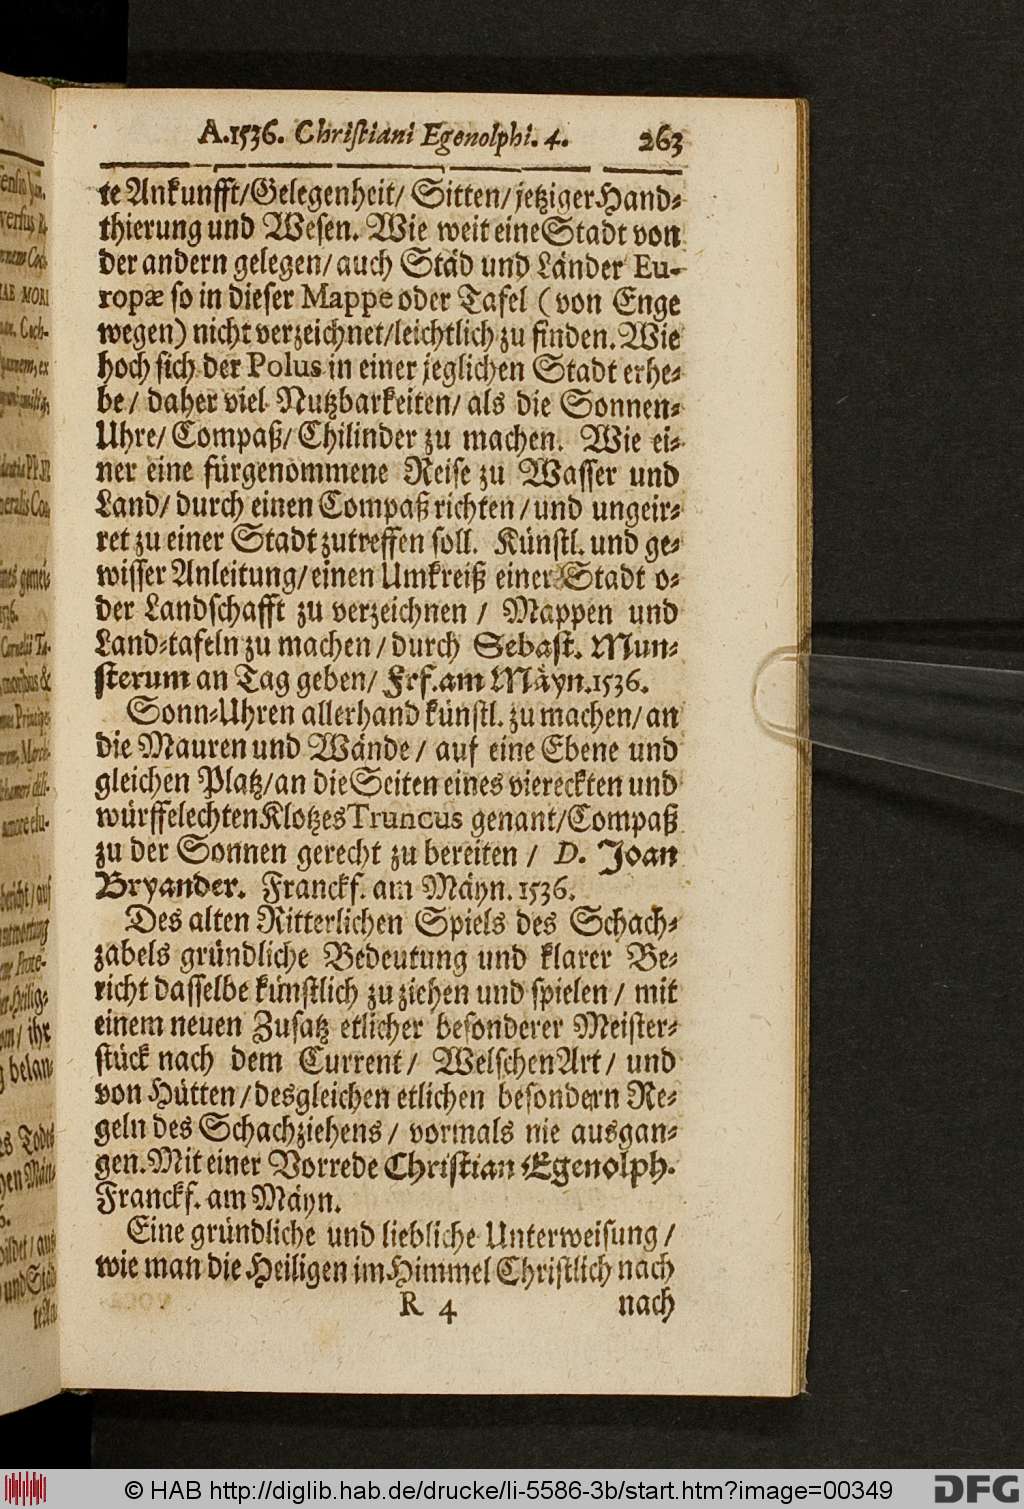 A.1536. Christiani Egenolphi. 4. 263
te Ankunfft/Gelegenheit/ Sitten/jetziger Hand-
thierung und Wesen. Wie weit eine Stadt von
der andern gelegen/auch Städ und Länder Eu-
ropæ so in dieser Mappe oder Tafel (von Enge
wegen) nicht verzeichnet/leichtlich zu finden. Wie
hoch sich der Polus in einer jeglichen Stadt erhe-
be/ daher viel Nutzbarkeiten/ als die Sonnen-
Uhre/ Compaß/ Chilinder zu machen. Wie ei-
ner eine fürgenommene Reise zu Wasser und
Land/ durch einen Compaß richten/und ungeir-
ret zu einer Stadt zutreffen soll. Künstl. und ge-
wisser Anleitung/einen Umkreiß einer Stadt o-
der Landschafft zu verzeichnen / Mappen und
Land-tafeln zu machen/durch Sebast. Mun-
sterum an Tag geben/ Frf.am Mäyn.1536.
Sonn-Uhren allerhand künstl. zu machen/an
die Mauren und Wände / auf eine Ebene und
gleichen Platz/an die Seiten eines viereckten und
würffelechten Klotzes Truncus genant/Compaß
zu der Sonnen gerecht zu bereiten / D. Joan
Bryander. Franckf. am Mäyn. 1536.
Des alten Ritterlichen Spiels des Schach-
zabels gründliche Bedeutung und klarer Be-
richt dasselbe künstlich zu ziehen und spielen / mit
einem neuen Zusatz etlicher besonderer Meister-
stück nach dem Current/ Welschen Art/ und
von Hütten/desgleichen etlichen besondern Re-
geln des Schachziehens / vormals nie ausgan-
gen. Mit einer Vorrede Christian Egenolph.
Franckf. am Mäyn.
Eine gründliche und liebliche Unterweisung /
wie man die Heiligen im Himmel Christlich nach
R 4 nach
© HAB http://diglib.hab.de/drucke/li-5586-3b/start.htm?image=00349
DFG